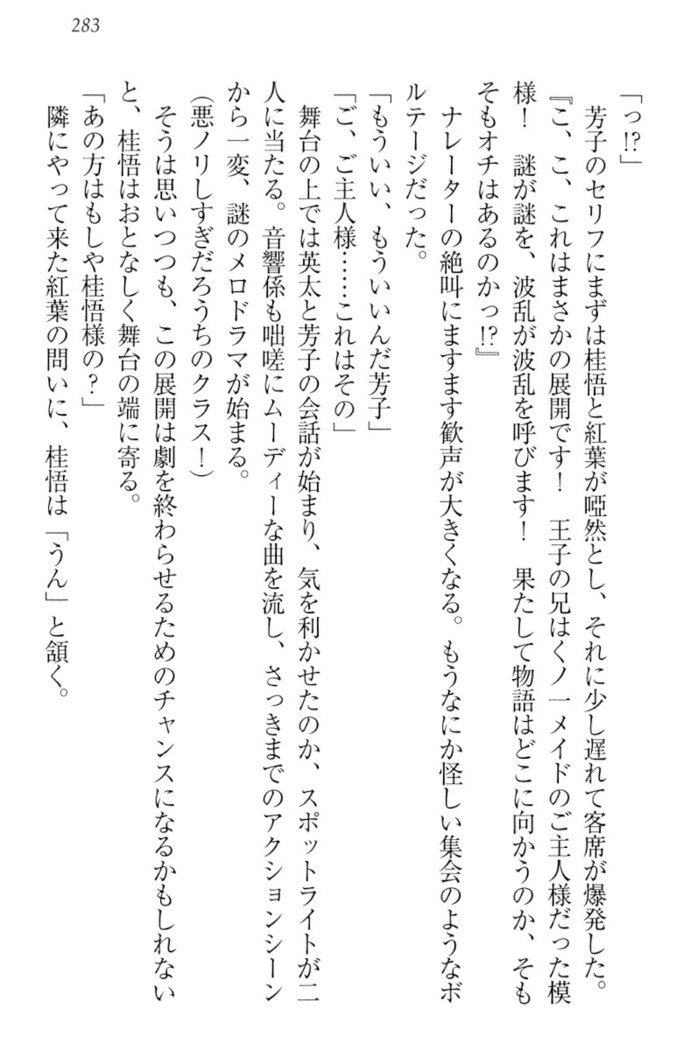 283
「っ!?」
　芳子のセリフにまずは桂悟と紅葉が啞然とし、それに少し遅れて客席が爆発した。
『こ、こ、これはまさかの展開です！　王子の兄はくノ一メイドのご主人様だった模
様！　謎が謎を、波乱が波乱を呼びます！　果たして物語はどこに向かうのか、そも
そもオチはあるのかっ!?』
　ナレーターの絶叫にますます歓声が大きくなる。もうなにか怪しい集会のようなボ
ルテージだった。
「もういい、もういいんだ芳子」
「ご、ご主人様……これはその」
　舞台の上では英太と芳子の会話が始まり、気を利かせたのか、スポットライトが二
人に当たる。音響係も咄嗟にムーディーな曲を流し、さっきまでのアクションシーン
から一変、謎のメロドラマが始まる。
（悪ノリしすぎだろうちのクラス！）
　そうは思いつつも、この展開は劇を終わらせるためのチャンスになるかもしれない
と、桂悟はおとなしく舞台の端に寄る。
「あの方はもしや桂悟様の？」
　隣にやって来た紅葉の問いに、桂悟は「うん」と頷く。